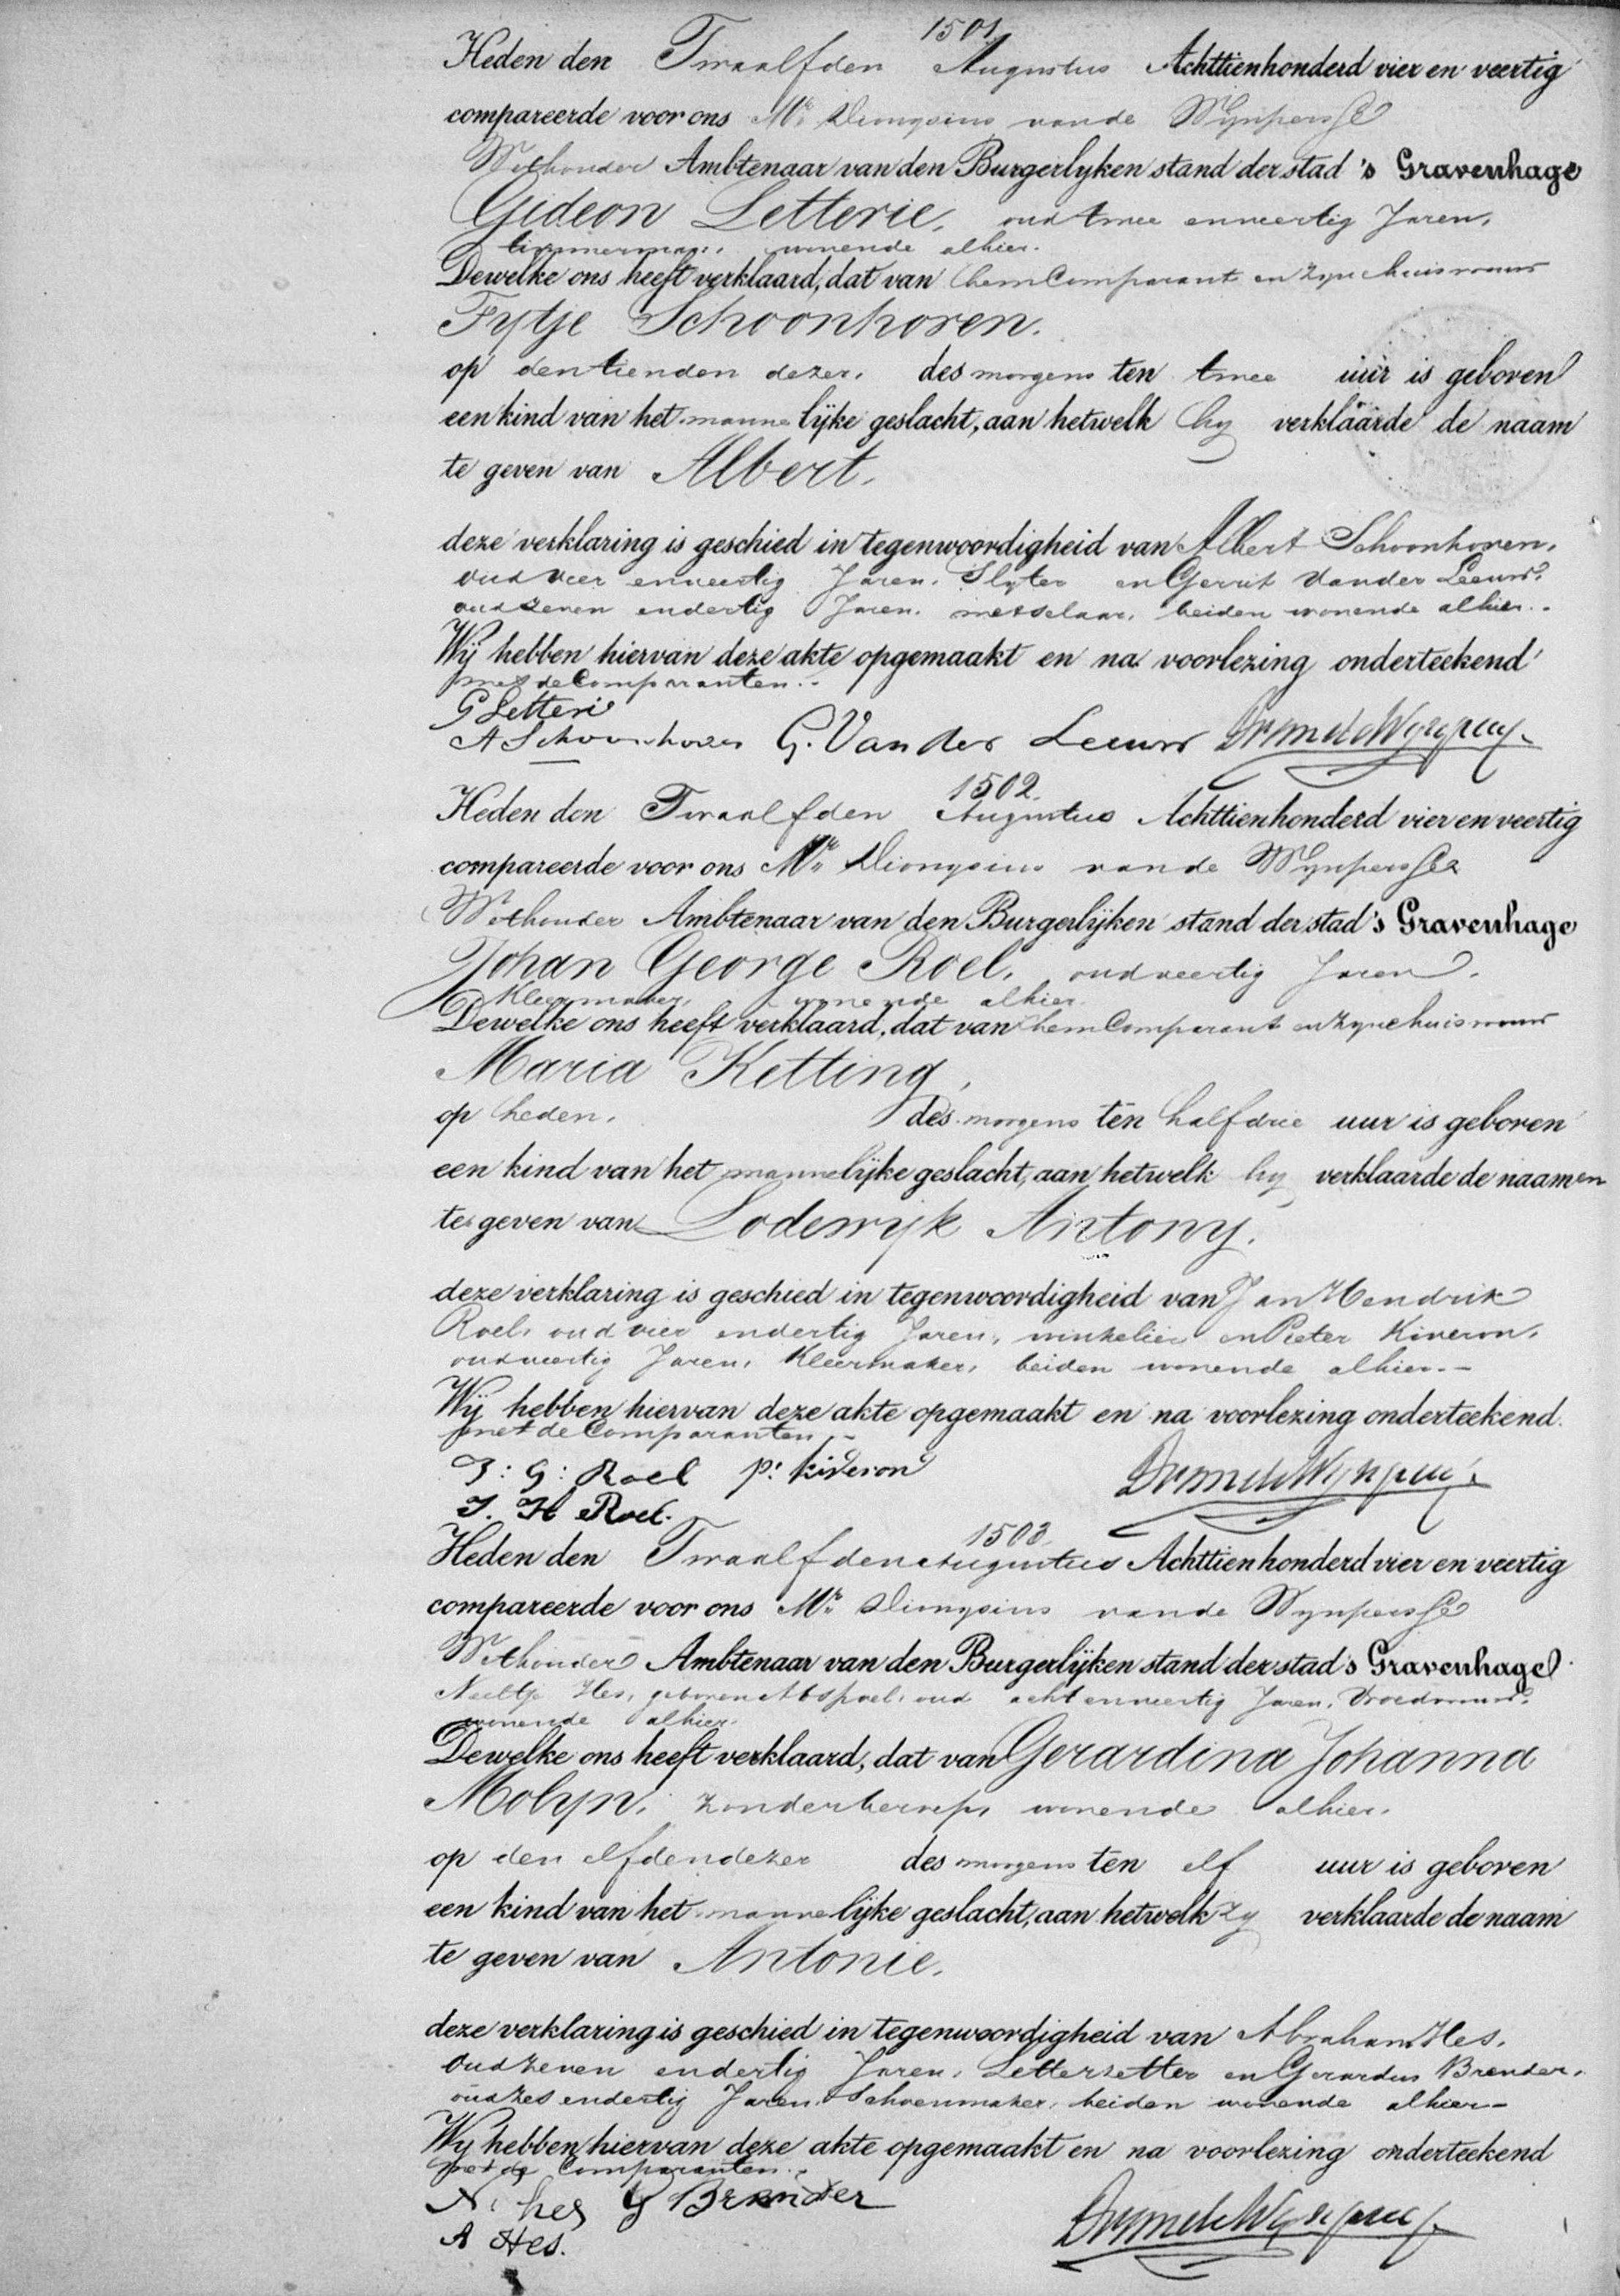 1501.
Heden den Twaalfden Augustus Achttienhonderd vier en veertig
compareerde voor ons Mr. Dionysius vande Wynpersse
Wethouder Ambtenaar van den Burgerlyken stand der stad 's Gravenhage
Gideon Letterie, oud twee enveertig Jaren,
timmerman, wonende alhier.
Dewelke ons heeft verklaard, dat van hem Comparant en zyne huisvrouw
Fytje Schoonhoven.
op den tienden dezer, des morgens ten twee uur is geboren
een kind van het mannelijke geslacht, aan hetwelk hy verklaarde de naam
te geven van Albert.
deze verklaring is geschied in tegenwoordigheid van Albert Schoonhoven,
oud vier enveertig Jaren, Slyter en Gerrit Vander Leeuw,
oud zeven endertig Jaren, metselaar, beiden wonende alhier.-
Wij hebben hiervan deze akte opgemaakt en na voorlezing onderteekend
met de Comparanten.-
G Letterie
A Schoonhoven G. Van der Leeuw
1502.
Heden den Twaalfden Augustus Achttienhonderd vier en veertig
compareerde voor ons Mr. Dionysius vande Wynpersse
Wethouder Ambtenaar van den Burgerlijken stand der stad 's Gravenhage
Johan George Roel, oud veertig Jaren,
Kleermaker, wonende alhier.
Dewelke ons heeft verklaard, dat van hem Comparant en zyne huisvrouw
Maria Ketting,
op heden, des morgens ten half drie uur is geboren
een kind van het mannelijke geslacht, aan hetwelk hy verklaarde de naamen
te geven van Lodewyk Antony.
deze verklaring is geschied in tegenwoordigheid van Jan Hendrik
Roel, oud vier endertig Jaren, winkelier en Pieter Kiveron,
oud veertig Jaren, Kleermaker, beiden wonende alhier.-
Wij hebben hiervan deze akte opgemaakt en na voorlezing onderteekend.
met de Comparanten.-
J: G: Roel p: kiveron
J. H Roel.
1503.
Heden den Twaalfden Augustus Achttienhonderd vier en veertig
compareerde voor ons Mr. Dionysius vande Wynpersse
Wethouder Ambtenaar van den Burgerlijken stand der stad 's Gravenhage
Neeltje Hes, geboren Abspoel, oud acht enveertig Jaren, Vroedvrouw,
wonende alhier.
Dewelke ons heeft verklaard, dat van Gerardina Johanna
Molyn, zonder beroep, wonende alhier,
op den elfden dezer des morgens ten elf uur is geboren
een kind van het mannelijke geslacht, aan hetwelk zy verklaarde de naam
te geven van Antonie.
deze verklaring is geschied in tegenwoordigheid van Abraham Hes,
oud zeven endertig Jaren, Letterzetter en Gerardus Brender,
oud zes endertig Jaren, Schoenmaker, beiden wonende alhier-
Wy hebben hiervan deze akte opgemaakt en na voorlezing onderteekend
met de Comparanten.-
N. hes G Brender
A Hes.